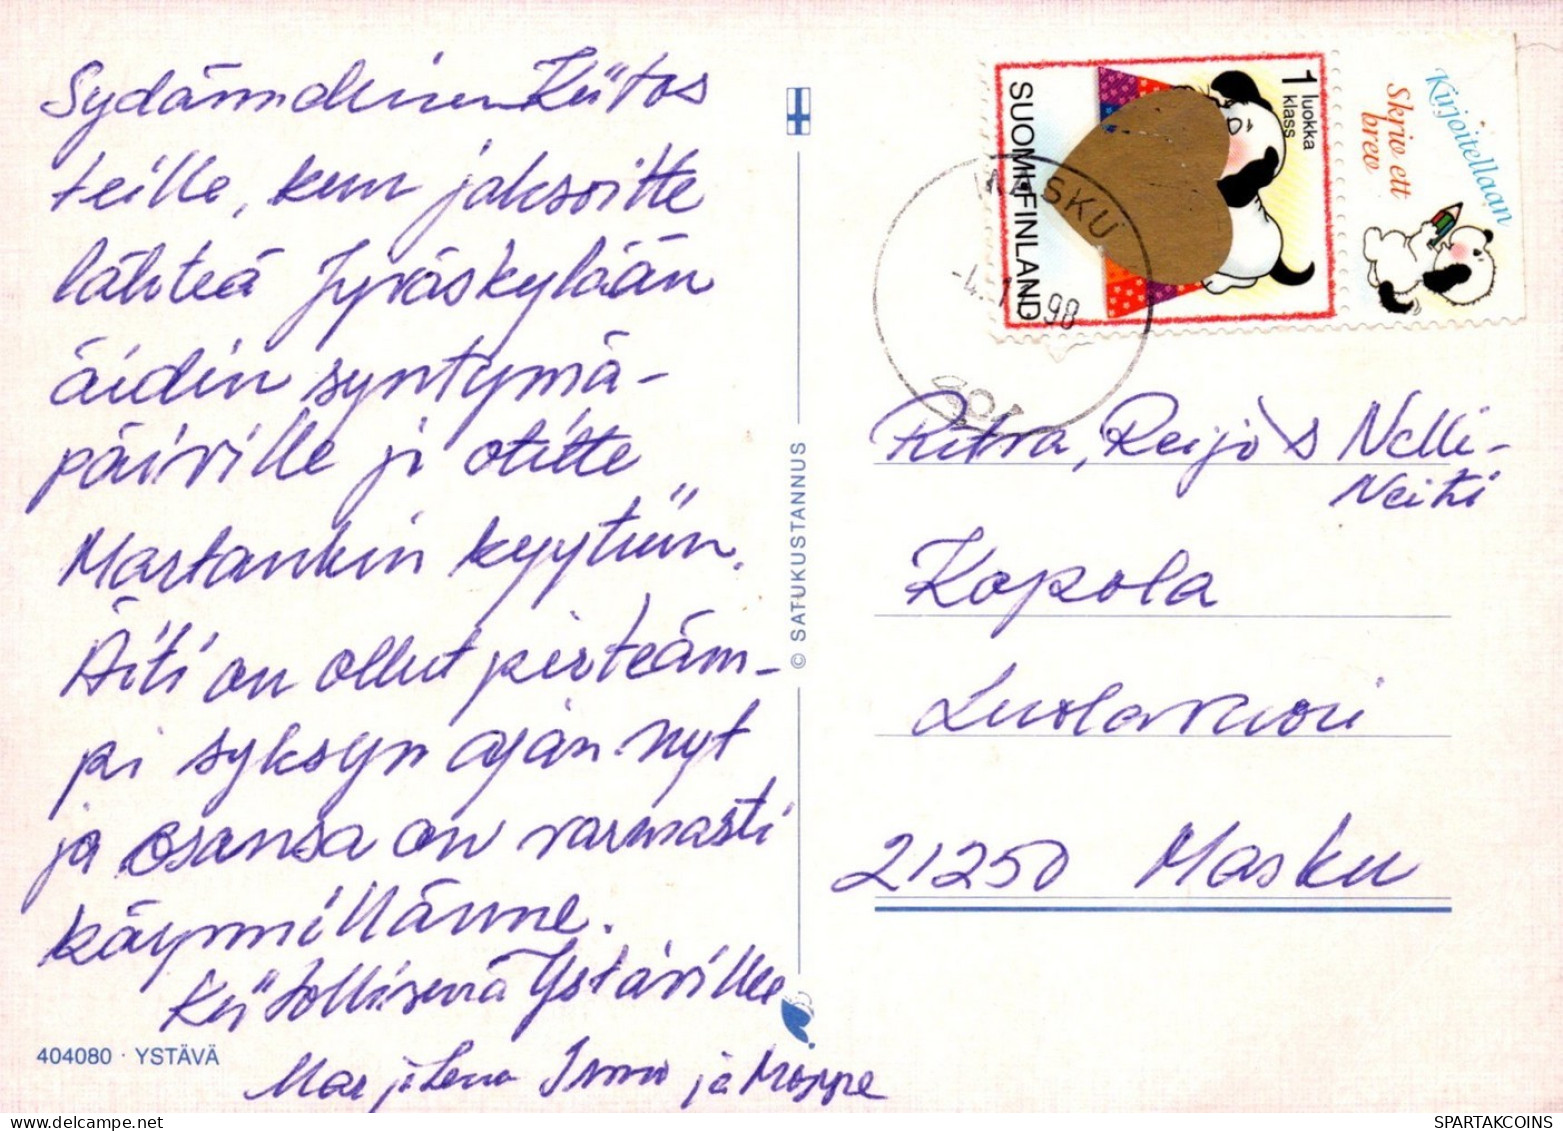 Sydämmellinen Kiitos
teille, kun jaksoitte
lähteä Jyväskylään
äidin syntymä-
päiville ji otitte
Martankin kyytiin.
Äiti on ollut pirteäm-
pi syksyn ajan nyt
ja osansa on varmasti
käynnillänne.
Kiitollisena Ystäville
Marjaleena Immo ja Moppe
404080 · YSTÄVÄ
© SATUKUSTANNUS
SUOMI·FINLAND
1 luokka
klass
Kirjoitellaan
Skriv ett
brev
MASKU
-4.1.98
Ritva, Reijo & Nelli-
Neiti
Kopola
Luolavuori
21250 Masku
SPARTAKCOINS